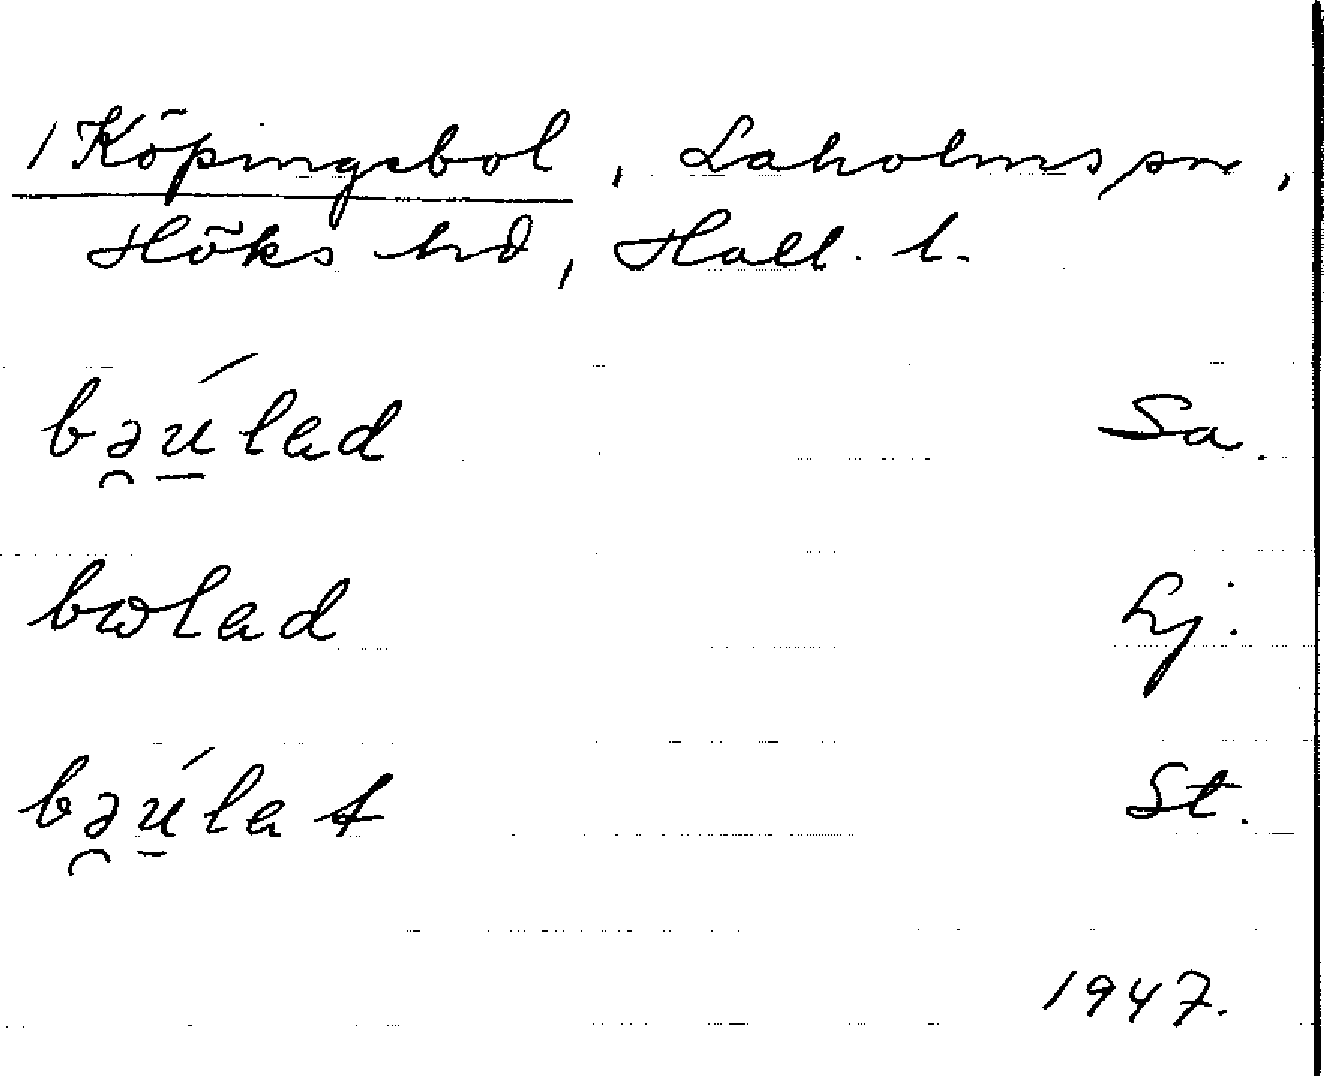 / Köpingsbol, Laholms sn,
Höks hd, Hall. l.
bə̯ú̱lad Sa.
bωlad Lj.
bə̯ú̱lat St.
1947.